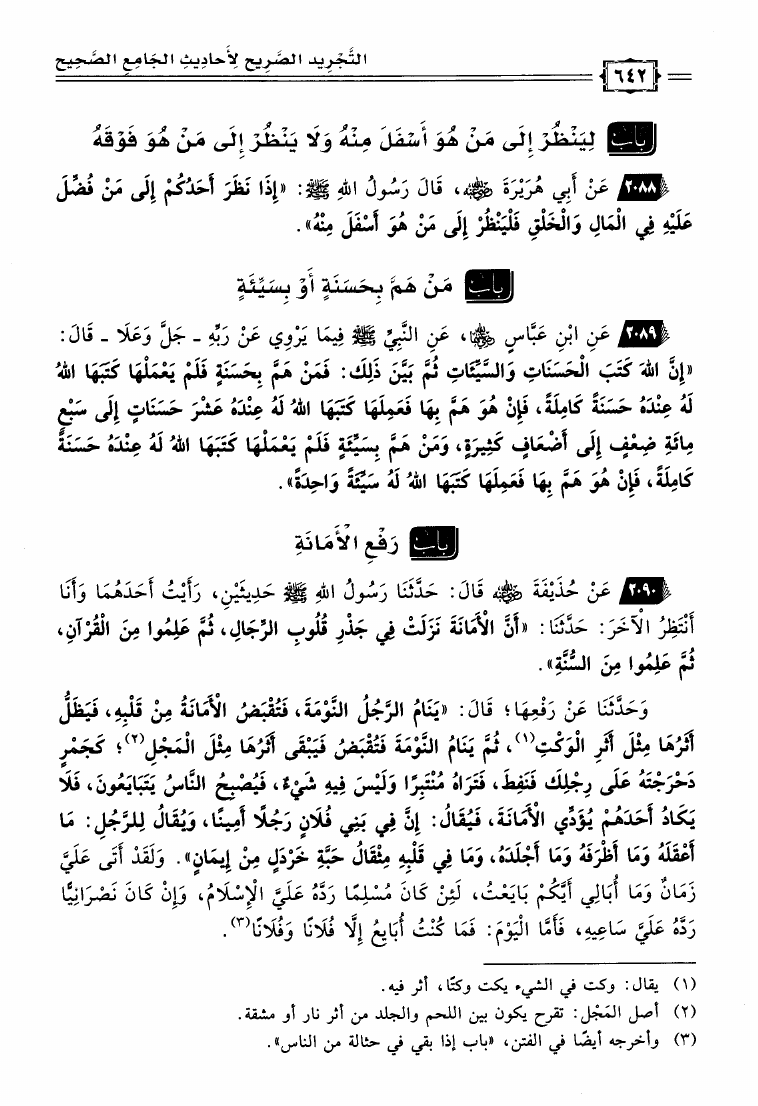 التَّجْرِيد الصَّرِيح لِأَحَادِيثِ الجَامِعِ الصَّحِيح
٦٤٢
باب لِيَنْظُرْ إِلَى مَنْ هُوَ أَسْفَلَ مِنْهُ وَلَا يَنْظُرْ إِلَى مَنْ هُوَ فَوْقَهُ
٢٠٨٨ عَنْ أَبِي هُرَيْرَةَ رضي الله عنه، قَالَ رَسُولُ اللهِ ﷺ: «إِذَا نَظَرَ أَحَدُكُمْ إِلَى مَنْ فُضِّلَ
عَلَيْهِ فِي الْمَالِ وَالْخَلْقِ فَلْيَنْظُرْ إِلَى مَنْ هُوَ أَسْفَلَ مِنْهُ».
باب مَنْ هَمَّ بِحَسَنَةٍ أَوْ بِسَيِّئَةٍ
٢٠٨٩ عَنِ ابْنِ عَبَّاسٍ رضي الله عنهما، عَنِ النَّبِيِّ ﷺ فِيمَا يَرْوِي عَنْ رَبِّهِ ـ جَلَّ وَعَلَا ـ قَالَ:
«إِنَّ اللهَ كَتَبَ الْحَسَنَاتِ وَالسَّيِّئَاتِ ثُمَّ بَيَّنَ ذَلِكَ: فَمَنْ هَمَّ بِحَسَنَةٍ فَلَمْ يَعْمَلْهَا كَتَبَهَا اللهُ
لَهُ عِنْدَهُ حَسَنَةً كَامِلَةً، فَإِنْ هُوَ هَمَّ بِهَا فَعَمِلَهَا كَتَبَهَا اللهُ لَهُ عِنْدَهُ عَشْرَ حَسَنَاتٍ إِلَى سَبْعِ
مِائَةِ ضِعْفٍ إِلَى أَضْعَافٍ كَثِيرَةٍ، وَمَنْ هَمَّ بِسَيِّئَةٍ فَلَمْ يَعْمَلْهَا كَتَبَهَا اللهُ لَهُ عِنْدَهُ حَسَنَةً
كَامِلَةً، فَإِنْ هُوَ هَمَّ بِهَا فَعَمِلَهَا كَتَبَهَا اللهُ لَهُ سَيِّئَةً وَاحِدَةً».
باب رَفْعِ الْأَمَانَةِ
٢٠٩٠ عَنْ حُذَيْفَةَ رضي الله عنه قَالَ: حَدَّثَنَا رَسُولُ اللهِ ﷺ حَدِيثَيْنِ، رَأَيْتُ أَحَدَهُمَا وَأَنَا
أَنْتَظِرُ الْآخَرَ: حَدَّثَنَا: «أَنَّ الْأَمَانَةَ نَزَلَتْ فِي جَذْرِ قُلُوبِ الرِّجَالِ، ثُمَّ عَلِمُوا مِنَ الْقُرْآنِ،
ثُمَّ عَلِمُوا مِنَ السُّنَّةِ».
وَحَدَّثَنَا عَنْ رَفْعِهَا؛ قَالَ: «يَنَامُ الرَّجُلُ النَّوْمَةَ، فَتُقْبَضُ الْأَمَانَةُ مِنْ قَلْبِهِ، فَيَظَلُّ
أَثَرُهَا مِثْلَ أَثَرِ الْوَكْتِ(١)، ثُمَّ يَنَامُ النَّوْمَةَ فَتُقْبَضُ فَيَبْقَى أَثَرُهَا مِثْلَ الْمَجْلِ(٢)؛ كَجَمْرٍ
دَحْرَجْتَهُ عَلَى رِجْلِكَ فَنَفِطَ، فَتَرَاهُ مُنْتَبِرًا وَلَيْسَ فِيهِ شَيْءٌ، فَيُصْبِحُ النَّاسُ يَتَبَايَعُونَ، فَلَا
يَكَادُ أَحَدُهُمْ يُؤَدِّي الْأَمَانَةَ، فَيُقَالُ: إِنَّ فِي بَنِي فُلَانٍ رَجُلًا أَمِينًا، وَيُقَالُ لِلرَّجُلِ: مَا
أَعْقَلَهُ وَمَا أَظْرَفَهُ وَمَا أَجْلَدَهُ، وَمَا فِي قَلْبِهِ مِثْقَالُ حَبَّةِ خَرْدَلٍ مِنْ إِيمَانٍ». وَلَقَدْ أَتَى عَلَيَّ
زَمَانٌ وَمَا أُبَالِي أَيَّكُمْ بَايَعْتُ، لَئِنْ كَانَ مُسْلِمًا رَدَّهُ عَلَيَّ الْإِسْلَامُ، وَإِنْ كَانَ نَصْرَانِيًّا
رَدَّهُ عَلَيَّ سَاعِيهِ، فَأَمَّا الْيَوْمَ: فَمَا كُنْتُ أُبَايِعُ إِلَّا فُلَانًا وَفُلَانًا(٣).
(١) يقال: وكت في الشيء يكت وكتًا، أثر فيه.
(٢) أصل المَجْل: تقرح يكون بين اللحم والجلد من أثر نار أو مشقة.
(٣) وأخرجه أيضًا في الفتن، «باب إذا بقي في حثالة من الناس».